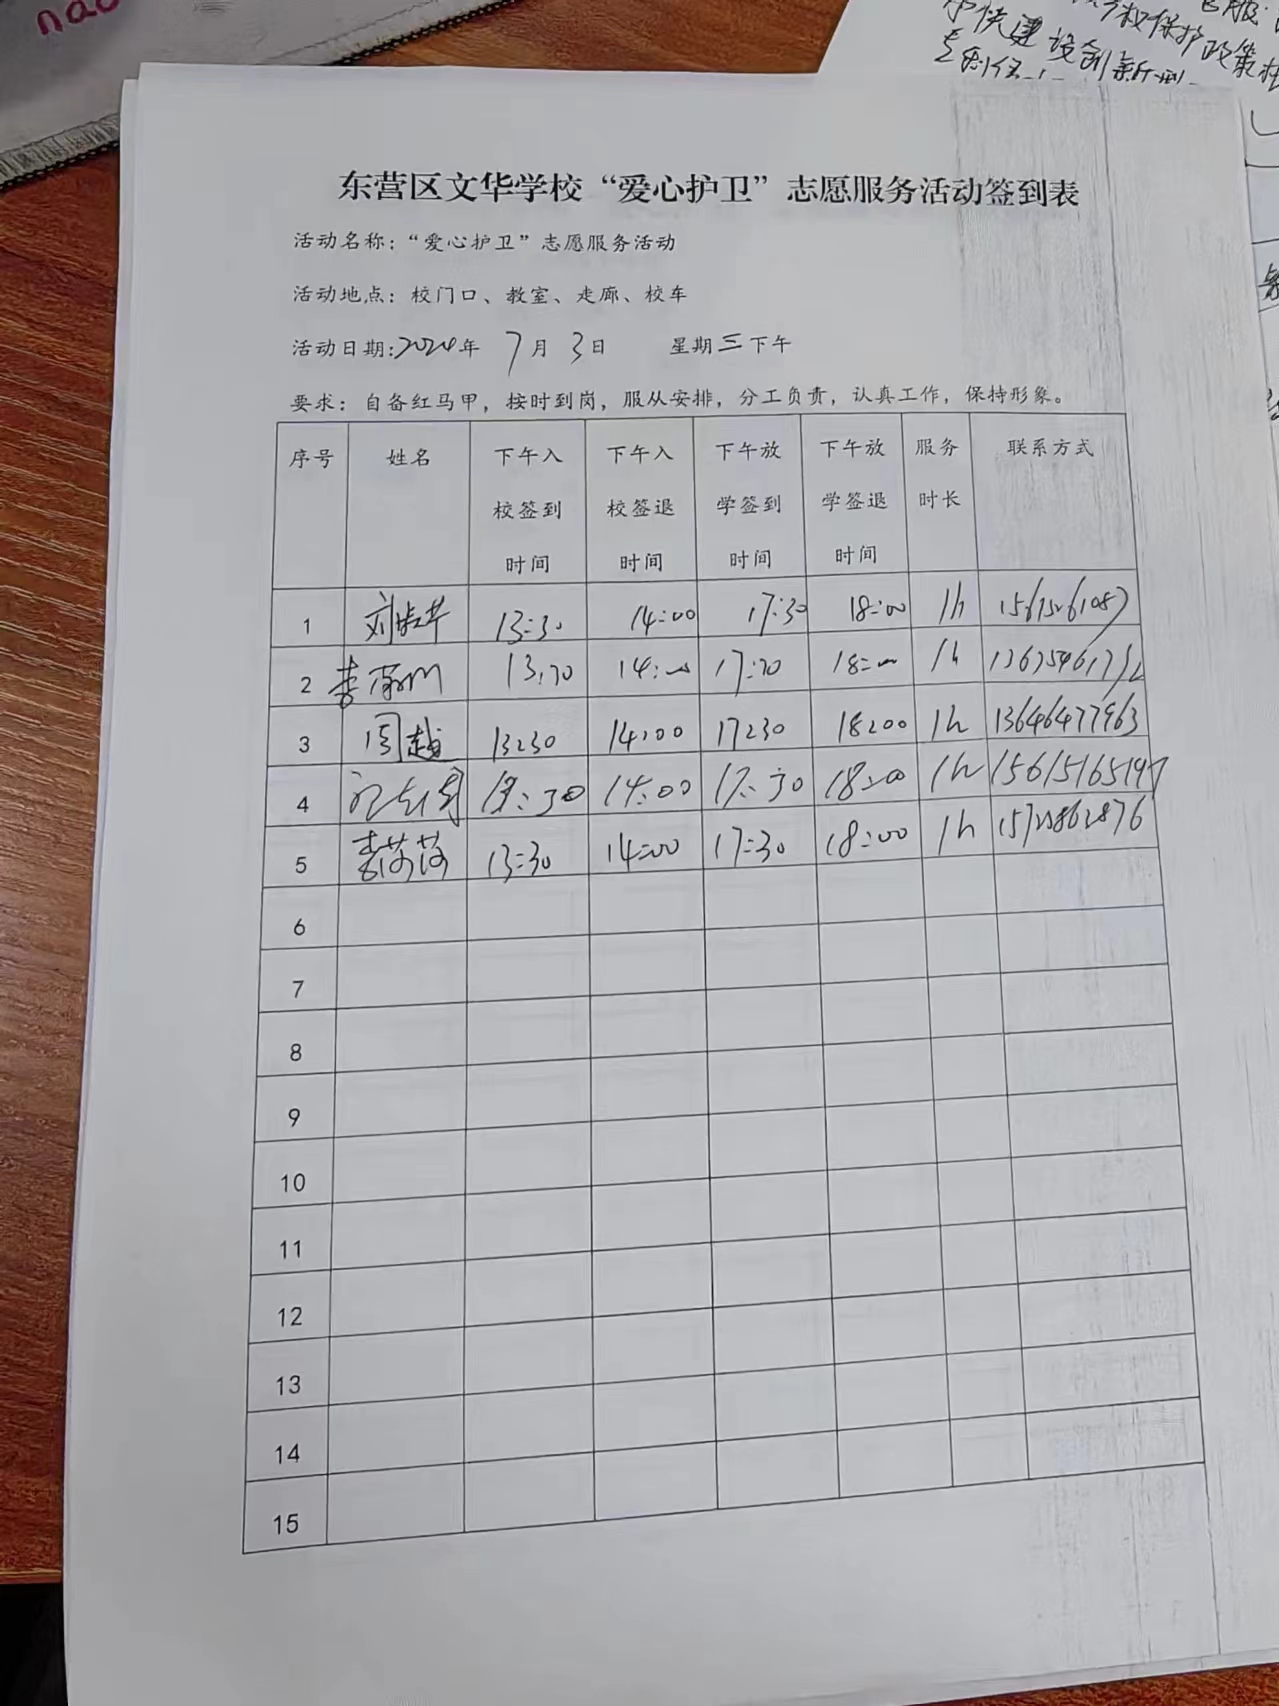 东营区文华学校“爱心护卫”志愿服务活动签到表
活动名称：“爱心护卫”志愿服务活动
活动地点：校门口、教室、走廊、校车
活动日期：2024年 7月 3日 星期三下午
要求：自备红马甲，按时到岗，服从安排，分工负责，认真工作，保持形象。
序号 姓名 下午入校签到时间 下午入校签退时间 下午放学签到时间 下午放学签退时间 服务时长 联系方式
1 刘 13:30 14:00 17:30 18:00 1h
2 李 13:30 14:00 17:30 18:00 1h
3 周越 13:30 14:00 17:30 18:00 1h 13646477963
4 13:30 14:00 17:30 18:00 1h 15615165197
5 李莎莎 13:30 14:00 17:30 18:00 1h
6
7
8
9
10
11
12
13
14
15